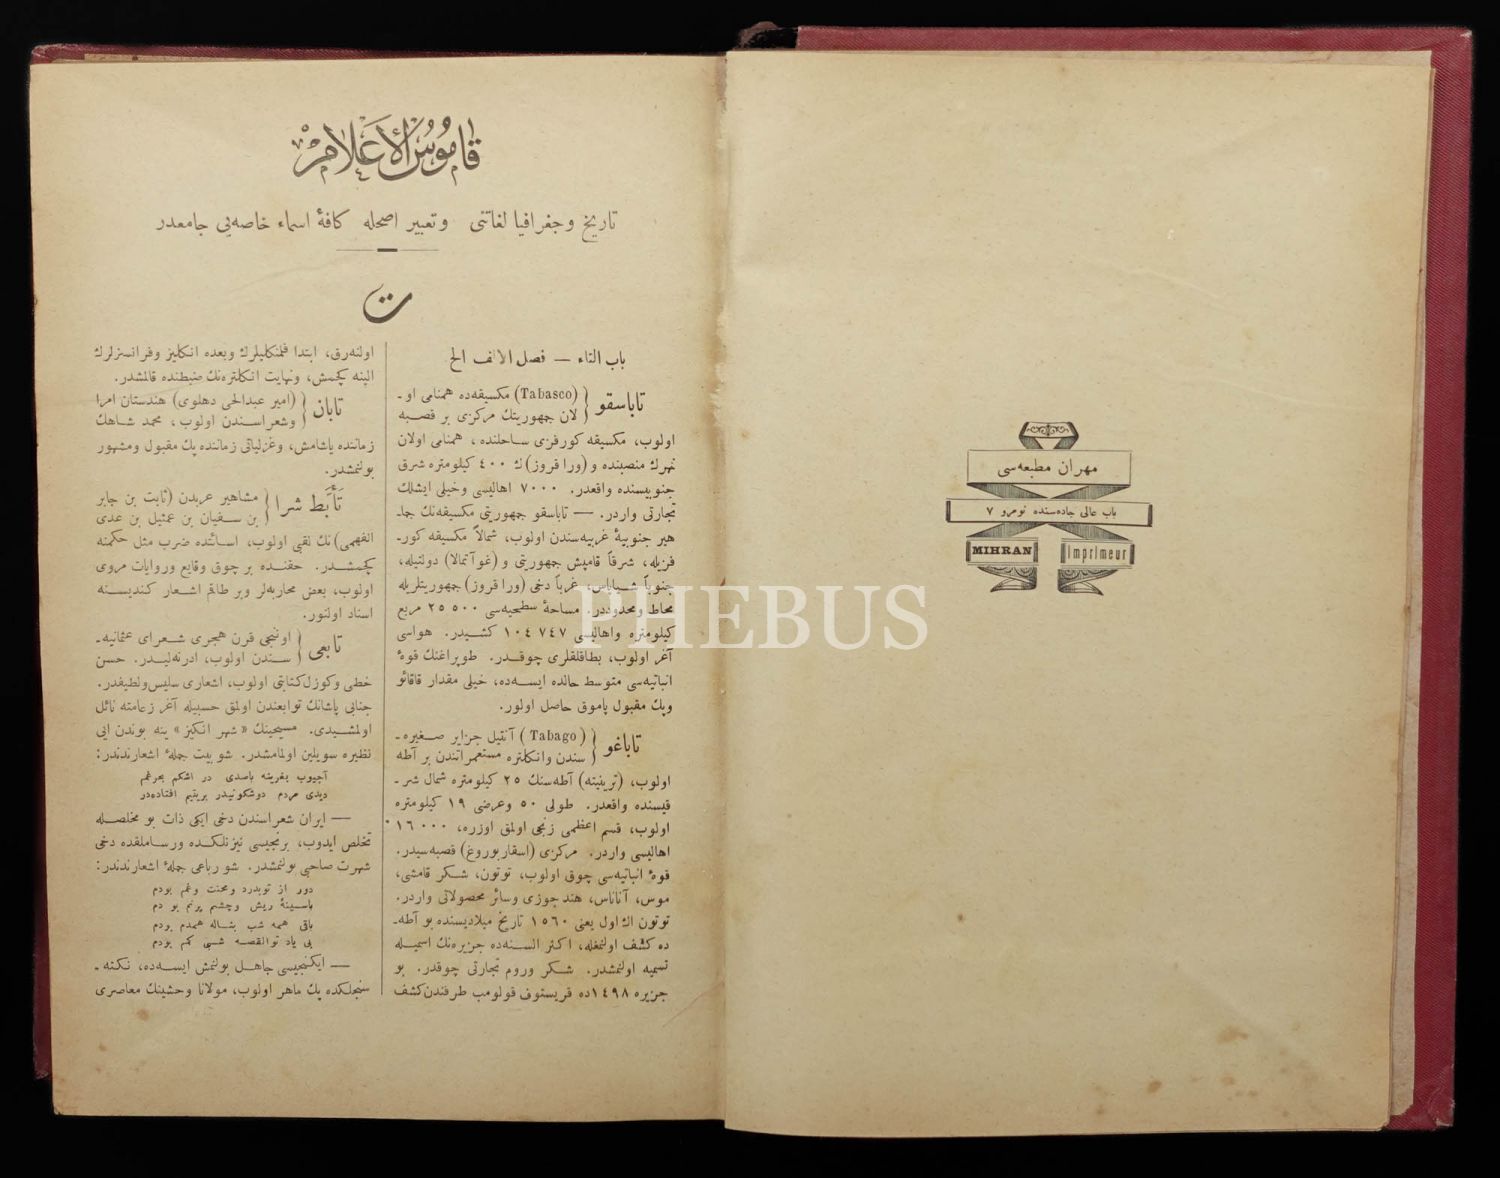 قاموس الأعلام
تاریخ وجغرافیا لغاتنی وتعبیر اصحله كافۀ اسماء خاصه‌یی جامعدر
ت
باب التاء — فصل الالف الخ
تاباسقو { (Tabasco) مكسیقه‌ده همنامی او-
لان جمهوریتك مركزی بر قصبه
اولوب، مكسیقه كورفزی ساحلنده، همنامی اولان
نهرك منصبنده و (ورا قروز) ك ٤٠٠ كیلومتره شرق
جنوبیسنده واقعدر. ٧٠٠٠ اهالیسی وخیلی ایشلك
تجارتی واردر. — تاباسقو جمهوریتی مكسیقه‌نك جما-
هیر جنوبیۀ غربیه‌سندن اولوب، شمالاً مكسیقه كور-
فزیله، شرقاً قامپش جمهوریتی و (غوآتمالا) دولتیله،
جنوباً شیاپاس، غرباً دخی (ورا قروز) جمهوریتلریله
محاط ومحدوددر. مساحۀ سطحیه‌سی ٢٥٥٠٠ مربع
كیلومتره واهالیسی ١٠٤٧٤٧ كشیدر. هواسی
آغر اولوب، بطاقلقلری چوقدر. طوپراغنك قوۀ
انباتیه‌سی متوسط حالده ایسه‌ده، خیلی مقدار قاقائو
وپك مقبول پاموق حاصل اولور.
تاباغو { (Tabago) آنتیل جزایر صغیره-
سندن وانكلتره مستعمراتندن بر آطه
اولوب، (ترینیته) آطه‌سنك ٢٥ كیلومتره شمال شر-
قیسنده واقعدر. طولی ٥٠ وعرضی ١٩ كیلومتره
اولوب، قسم اعظمی زنجی اولمق اوزره، ١٦٠٠٠
اهالیسی واردر. مركزی (اسقاربوروغ) قصبه‌سیدر.
قوۀ انباتیه‌سی چوق اولوب، توتون، شكر قامشی،
موس، آناناس، هند جوزی وسائر محصولاتی واردر.
توتون اك اول یعنی ١٥٦٠ تاریخ میلادیسنده بو آطه-
ده كشف اولنمغله، اكثر السنه‌ده جزیره‌نك اسمیله
تسمیه اولنمشدر. شكر وروم تجارتی چوقدر. بو
جزیره ١٤٩٨ده قریستوف قولومب طرفندن كشف
اولنه‌رق، ابتدا فلمنكلیلرك وبعده انكلیز وفرانسزلرك
الینه كچمش، ونهایت انكلتره‌نك ضبطنده قالمشدر.
تابان { (امیر عبدالحی دهلوی) هندستان امرا
وشعراسندن اولوب، محمد شاهك
زماننده یاشامش، وغزلیاتی زماننده پك مقبول ومشهور
بولنمشدر.
تَأَبَّطَ شرا { مشاهیر عربدن (ثابت بن جابر
بن سفیان بن عمثیل بن عدی
الفهمی) نك لقبی اولوب، اسائده ضرب مثل حكمنه
كچمشدر. حقنده بر چوق وقایع وروایات مروی
اولوب، بعض محاربه‌لر وبر طاقم اشعار كندیسنه
اسناد اولنور.
تابعی { اوننجی قرن هجری شعرای عثمانیه-
سندن اولوب، ادرنه‌لیدر. حسن
خطی وكوزل كتابتی اولوب، اشعاری سلیس ولطیفدر.
جنابی پاشانك توابعندن اولمق حسبیله آغر زعامته نائل
اولمشیدی. مسیحینك «شهر انكیز» ینه بوندن ایی
نظیره سویلین اولمامشدر. شو بیت جملۀ اشعارندندر:
آچیوب بغرینه باصدی در اشكم بحرغم
دیدی مردم دوشكونیدر بریتیم افتاده‌در
— ایران شعراسندن دخی ایكی ذات بو مخلصله
تخلص ایدوب، برنجیسی تیزنلكده ورساملقده دخی
شهرت صاحبی بولنمشدر. شو رباعی جملۀ اشعارندندر:
دور از توبدرد ومحنت وغم بودم
باسینۀ ریش وچشم پرنم بودم
باقی همه شب بناله همدم بودم
بی یاد توالقصه شبی كم بودم
— ایكنجیسی جاهل بولنمش ایسه‌ده، نكته-
سنجلكده پك ماهر اولوب، مولانا وحشینك معاصری
مهران مطبعه‌سی
باب عالی جاده‌سنده نومرو ٧
MIHRAN imprimeur
PHEBUS